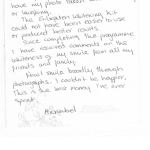 have my photo taken
or laughing.
The Whitening Kit
could not have been easier to use
or produced better results.
Since completing the programme
have received comments on the
whiteness of my smile from all my
friends and family.
Now I smile broadly through
photographs. I couldn't be happier.
This is the best money I've ever
spent.